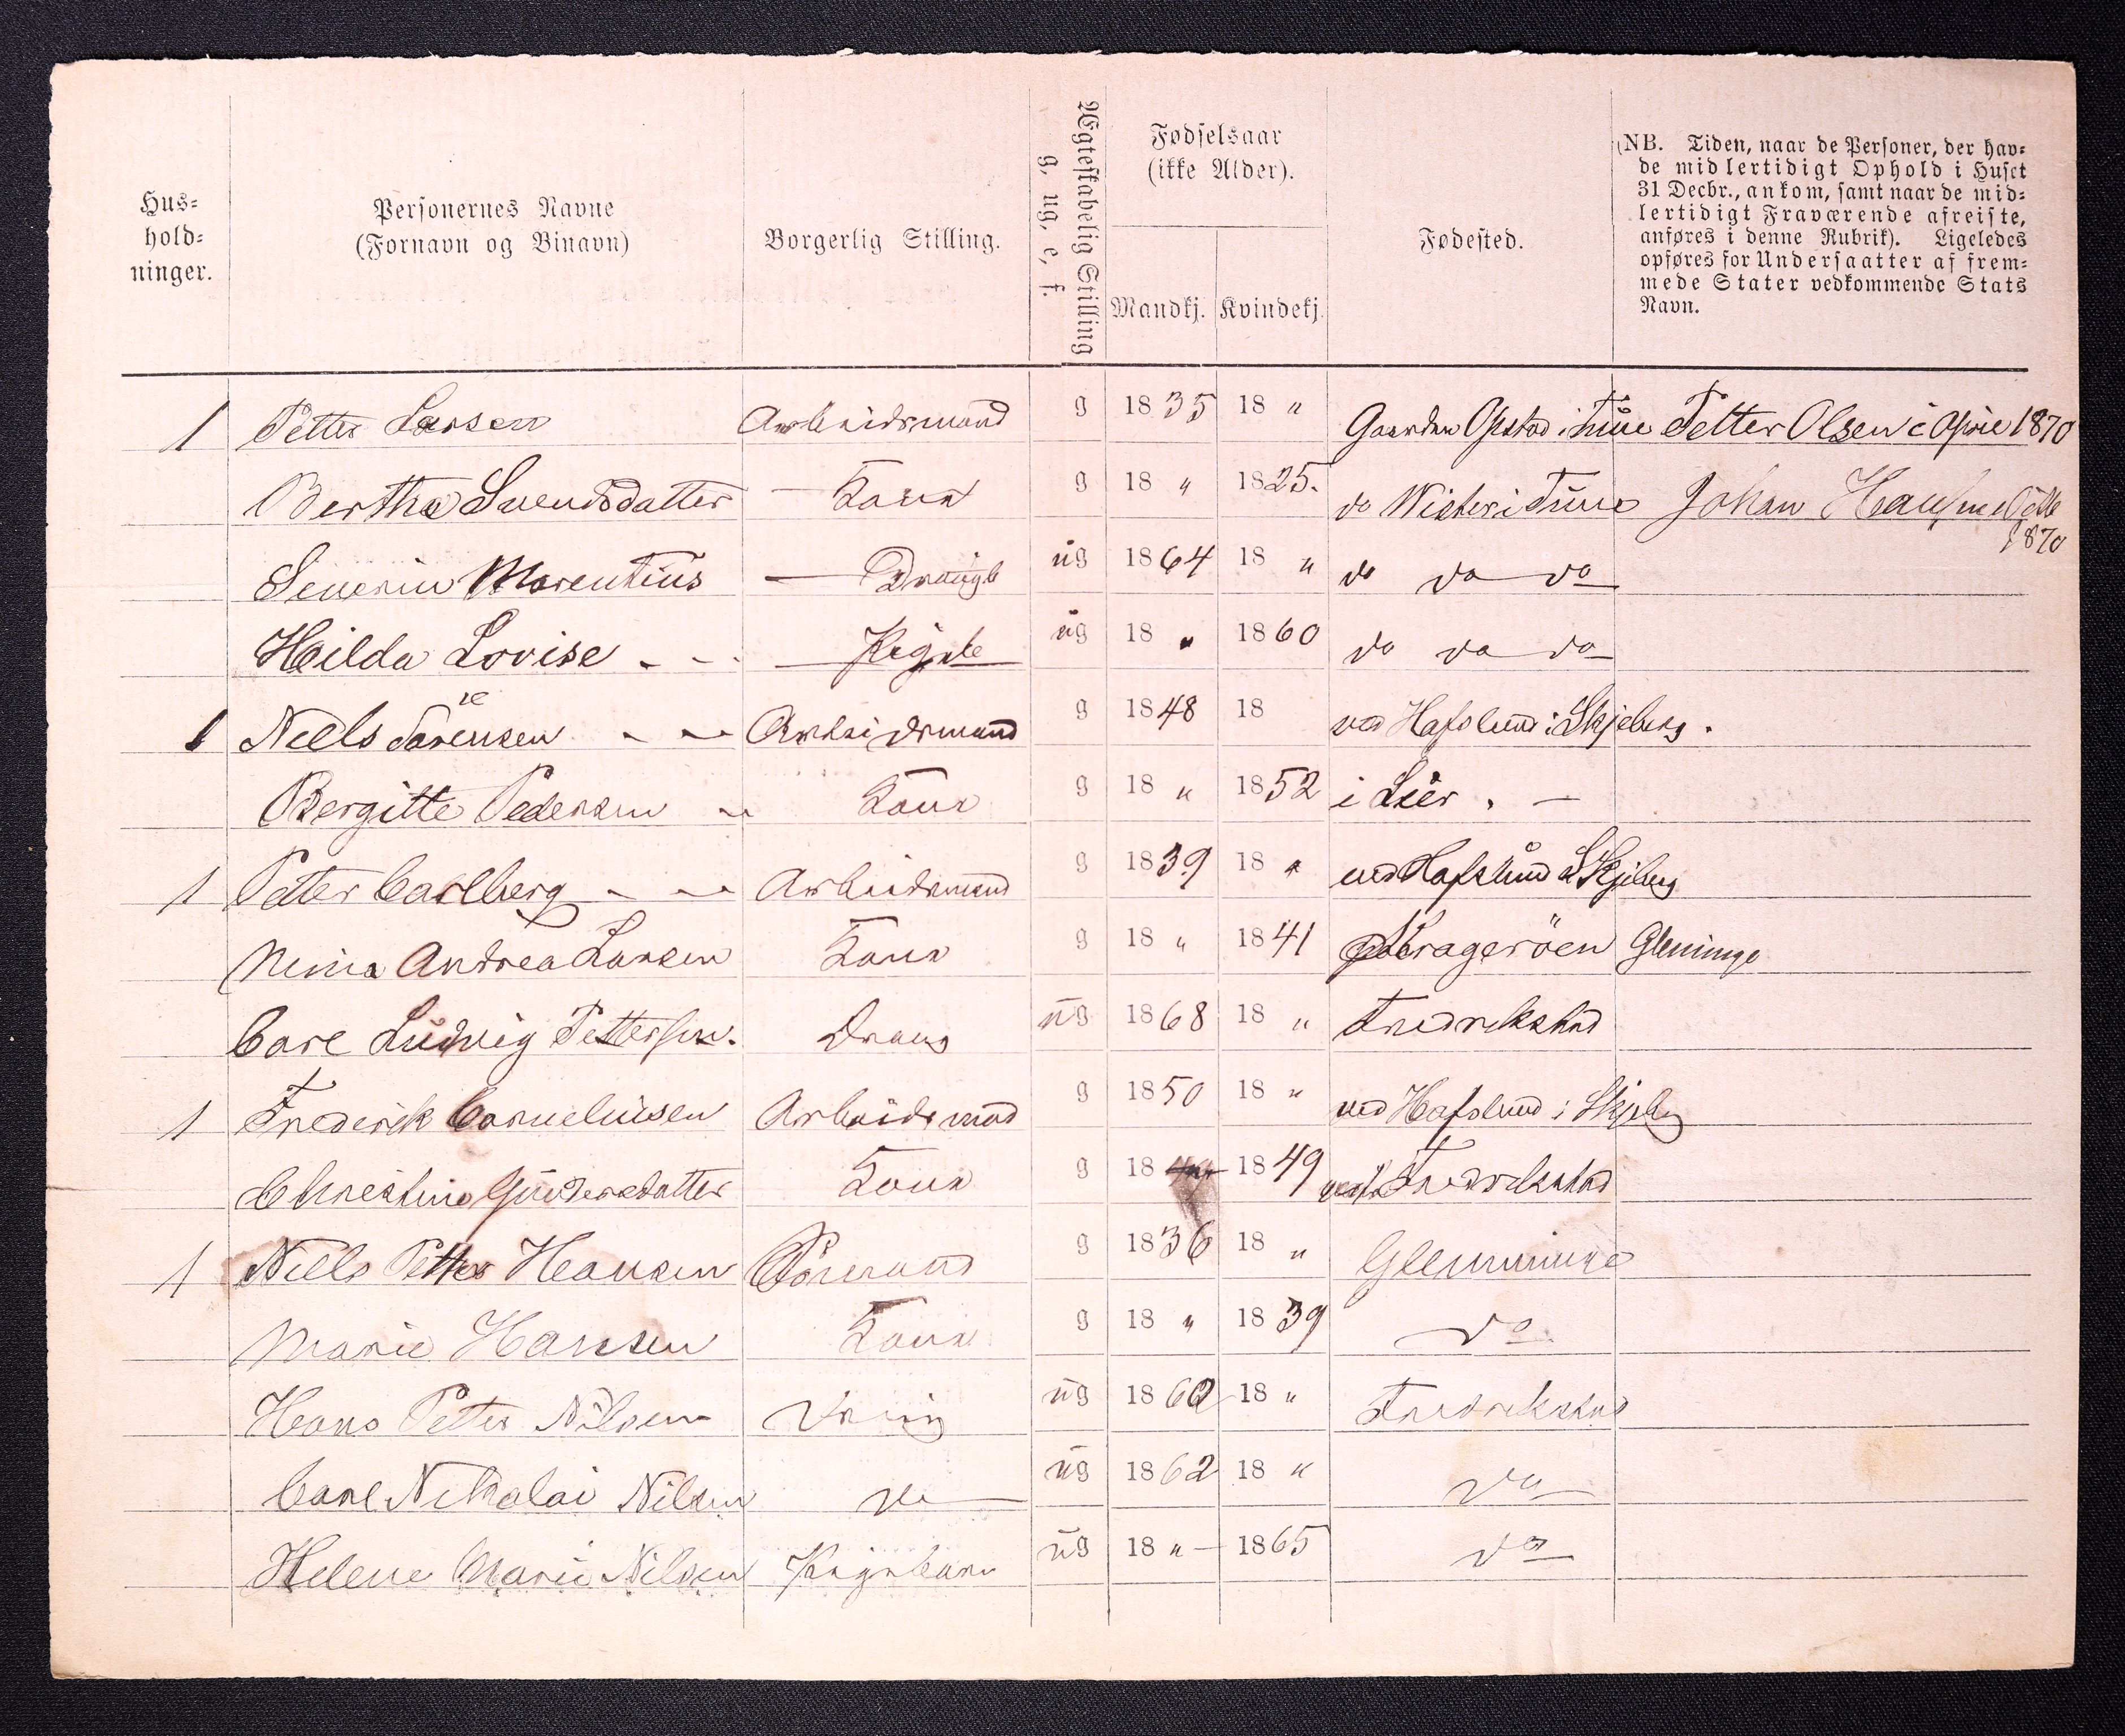 Hus-
hold-
ninger.
Personernes Navne
(Fornavn og Binavn)
Borgerlig Stilling.
Ægteskabelig Stilling
g, ug, e, f.
Fødselsaar
(ikke Alder).
Mandkj. Kvindekj.
Fødested.
(NB. Tiden, naar de Personer, der hav-
de midlertidigt Ophold i Huset
31 Decbr., ankom, samt naar de mid-
lertidigt Fraværende afreiste,
anføres i denne Rubrik). Ligeledes
opføres for Undersaatter af frem-
mede Stater vedkommende Stats
Navn.
1 Petter Larsen Arbeidsmand g 1835 18 " Gaarden Opstad i Tune Petter Olsen i 1870
Berthe Svendsdatter Kone g 18 " 1825. do i Tune Johan 1870
Severin Marentius — ug 1864 18 " do do do
Hilda Lovise - - — Pige ug 18 " 1860 do do do
1 Niels Sørensen - - Arbeidsmand g 1848 18 ved Hafslund i Skjeberg.
Bergitte Pedersen - Kone g 18 " 1852 i Lier. —
1 Petter Carlberg - - Arbeidsmand g 1839 18 " ved Hafslund Skjeberg
Mina Andrea Larsen Kone g 18 " 1841 Kragerøen Glemminge
Carl Ludvig Pettersen. Dreng ug 1868 18 " Fredrikstad
1 Frederik Corneliusen Arbeidsmand g 1850 18 " ved Hafslund i Skjeberg
Christine Kone g 18 1849 Fredrikstad
1 Niels Petter Hansen Sømand g 1836 18 " Glemminge
Marie Hansen Kone g 18 " 1839 do
Hans Petter Nilsen Dreng ug 1860 18 " Fredrikstad
Carl Nikolai Nilsen do ug 1862 18 " do
Helene Marie Nilsen Pigebarn ug 18 " 1865 do